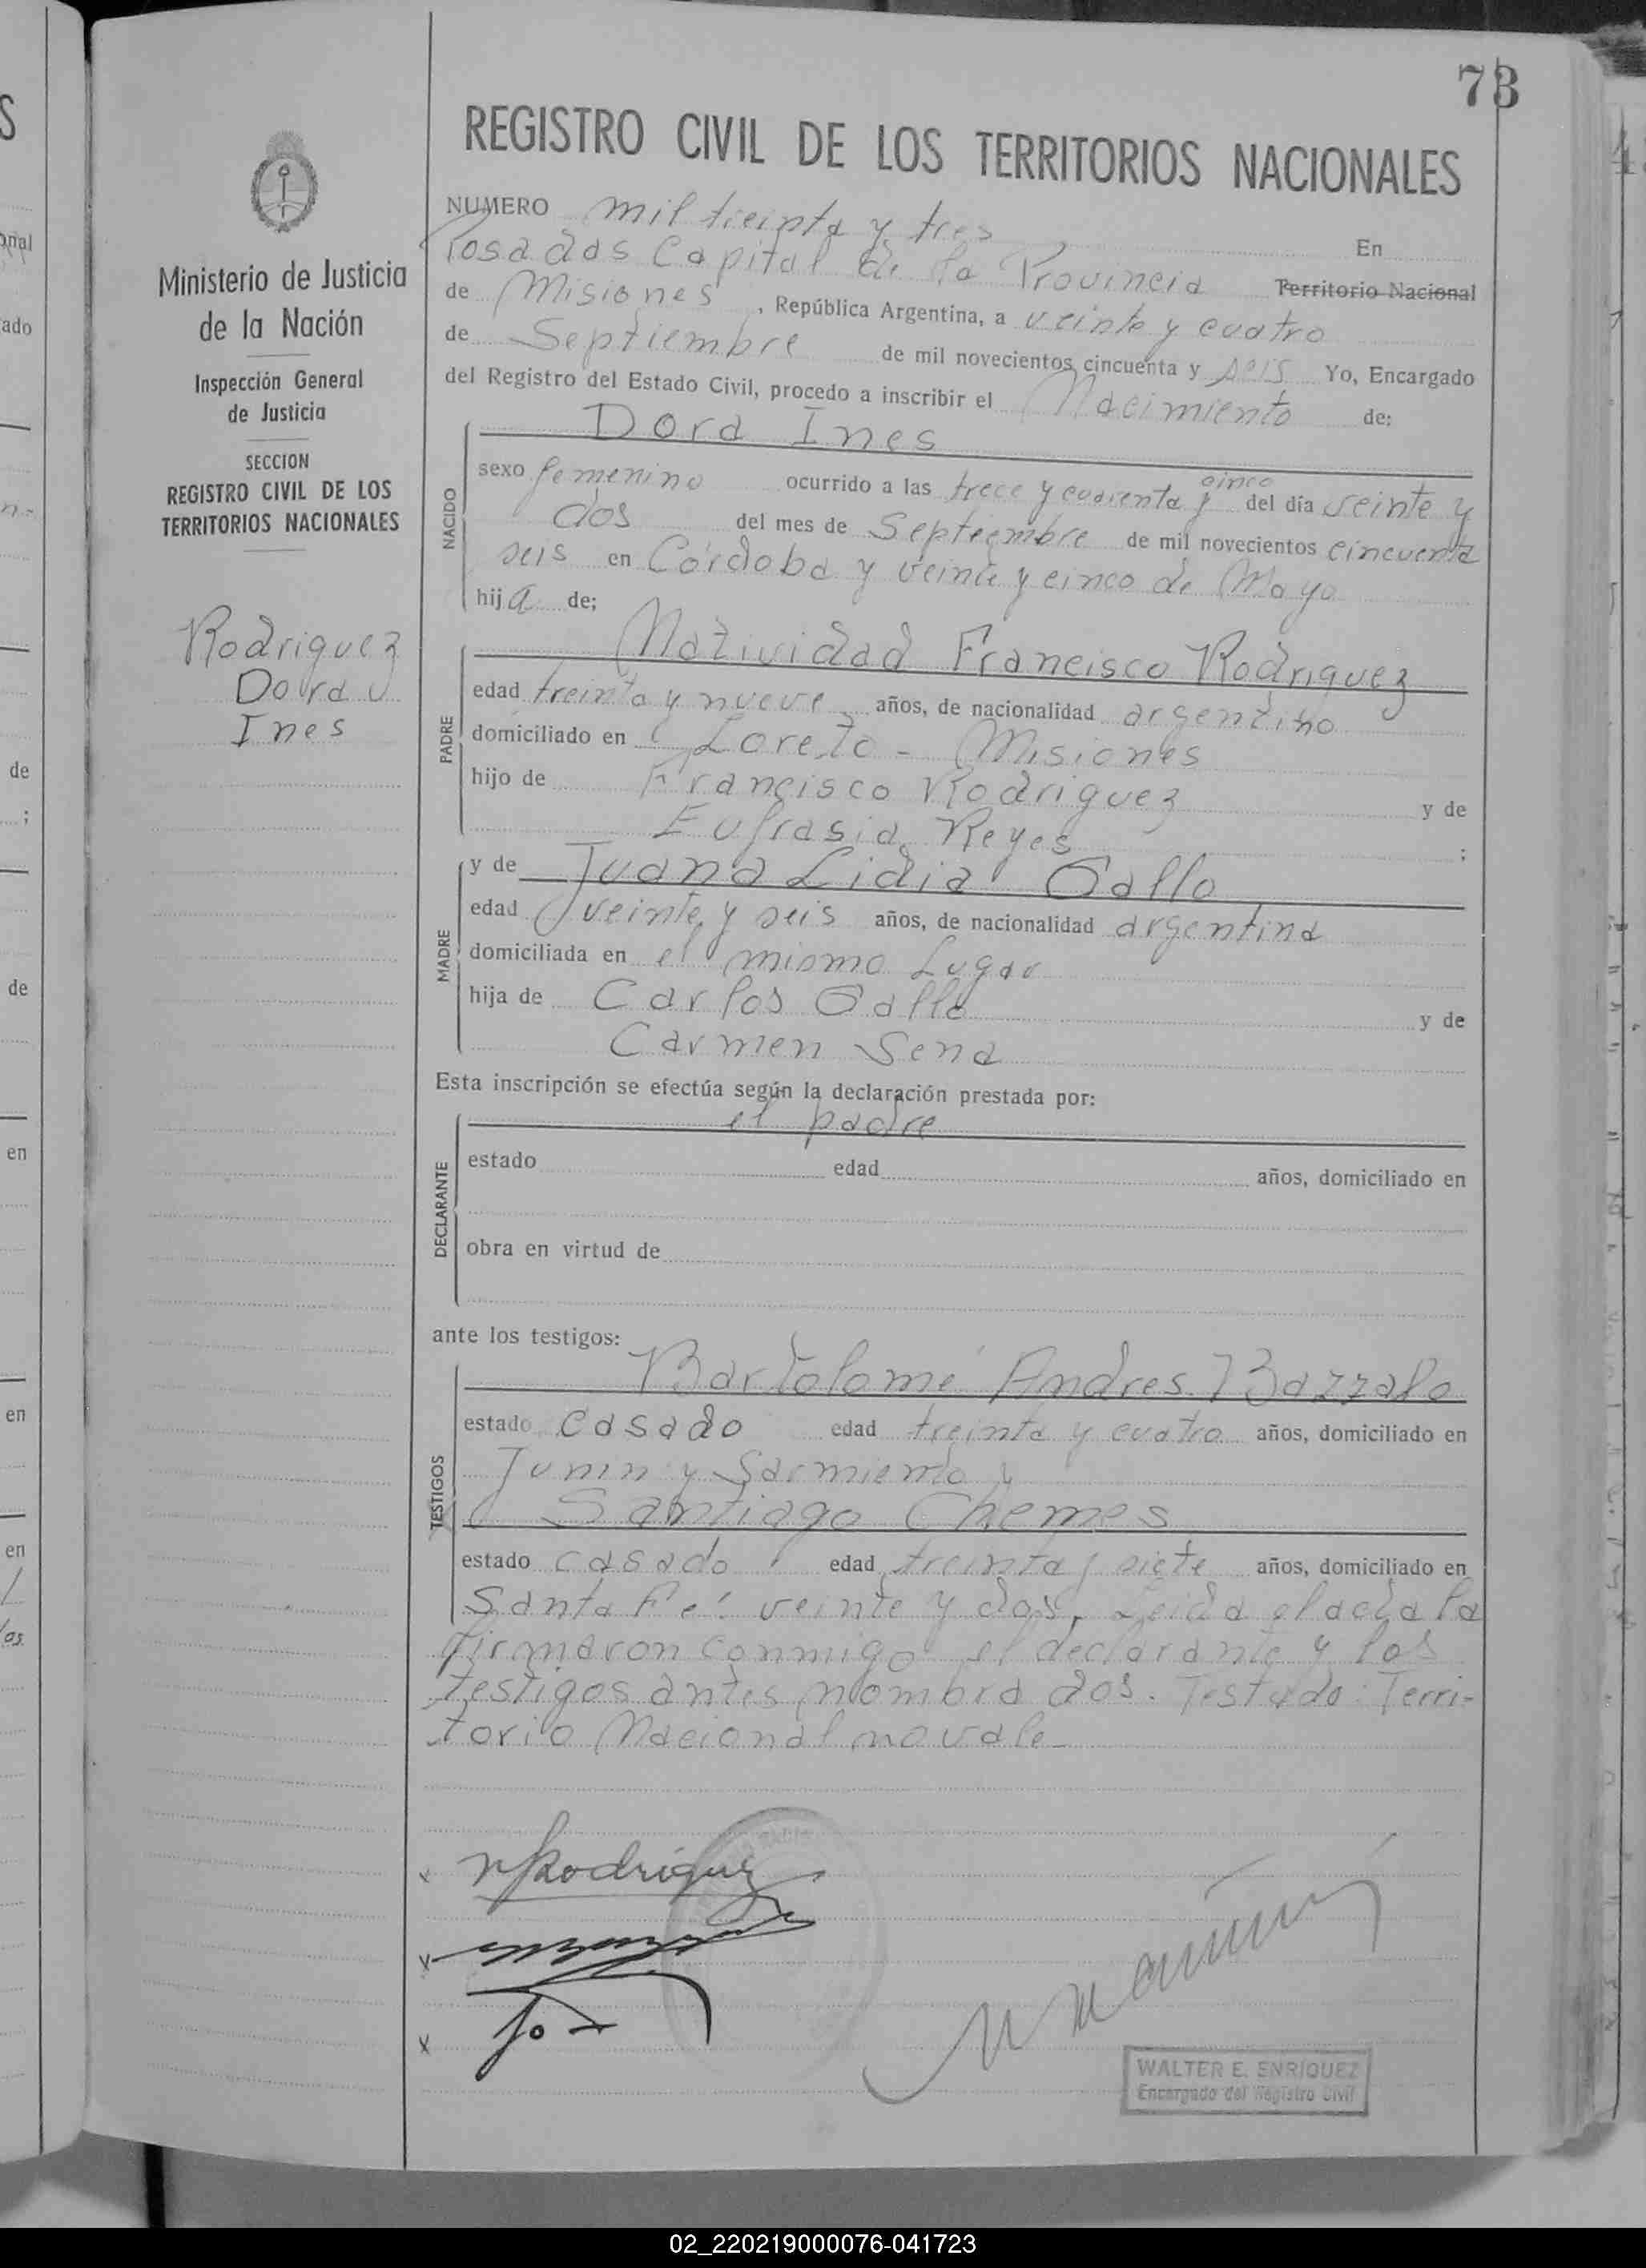 73
REGISTRO CIVIL DE LOS TERRITORIOS NACIONALES
Ministerio de Justicia
de la Nación
Inspección General
de Justicia
SECCION
REGISTRO CIVIL DE LOS
TERRITORIOS NACIONALES
Rodriguez
Dora
Ines
NUMERO mil treinta y tres En
Posadas Capital de la Provincia Territorio Nacional
de Misiones, República Argentina, a veinte y cuatro
de Septiembre de mil novecientos cincuenta y seis Yo, Encargado
del Registro del Estado Civil, procedo a inscribir el Nacimiento de:
Dora Ines
NACIDO
sexo femenino ocurrido a las trece y cuarenta y cinco del día veinte y
dos del mes de Septiembre de mil novecientos cincuenta
seis en Córdoba y veinte y cinco de Mayo
hija de;
Natividad Francisco Rodriguez
PADRE
edad treinta y nueve años, de nacionalidad argentino
domiciliado en Loreto - Misiones
hijo de Francisco Rodriguez y de
Eufrasia Reyes ;
y de Juana Lidia Gallo
MADRE
edad veinte y seis años, de nacionalidad argentina
domiciliada en el mismo Lugar
hija de Carlos Gallo y de
Carmen Sena
Esta inscripción se efectúa según la declaración prestada por:
el padre
DECLARANTE
estado edad años, domiciliado en
obra en virtud de
ante los testigos:
Bartolomé Andres Bazzalo
TESTIGOS
estado casado edad treinta y cuatro años, domiciliado en
Junin y Sarmiento y
Santiago Chemes
estado casado edad treinta y siete años, domiciliado en
Santa Fé veinte y dos. Leida el acta la
firmaron conmigo el declarante y los
testigos antes nombrados. Testado: Terri-
torio Nacional no vale
N F Rodriguez
WALTER E. ENRIQUEZ
Encargado del Registro Civil
02_220219000076-041723